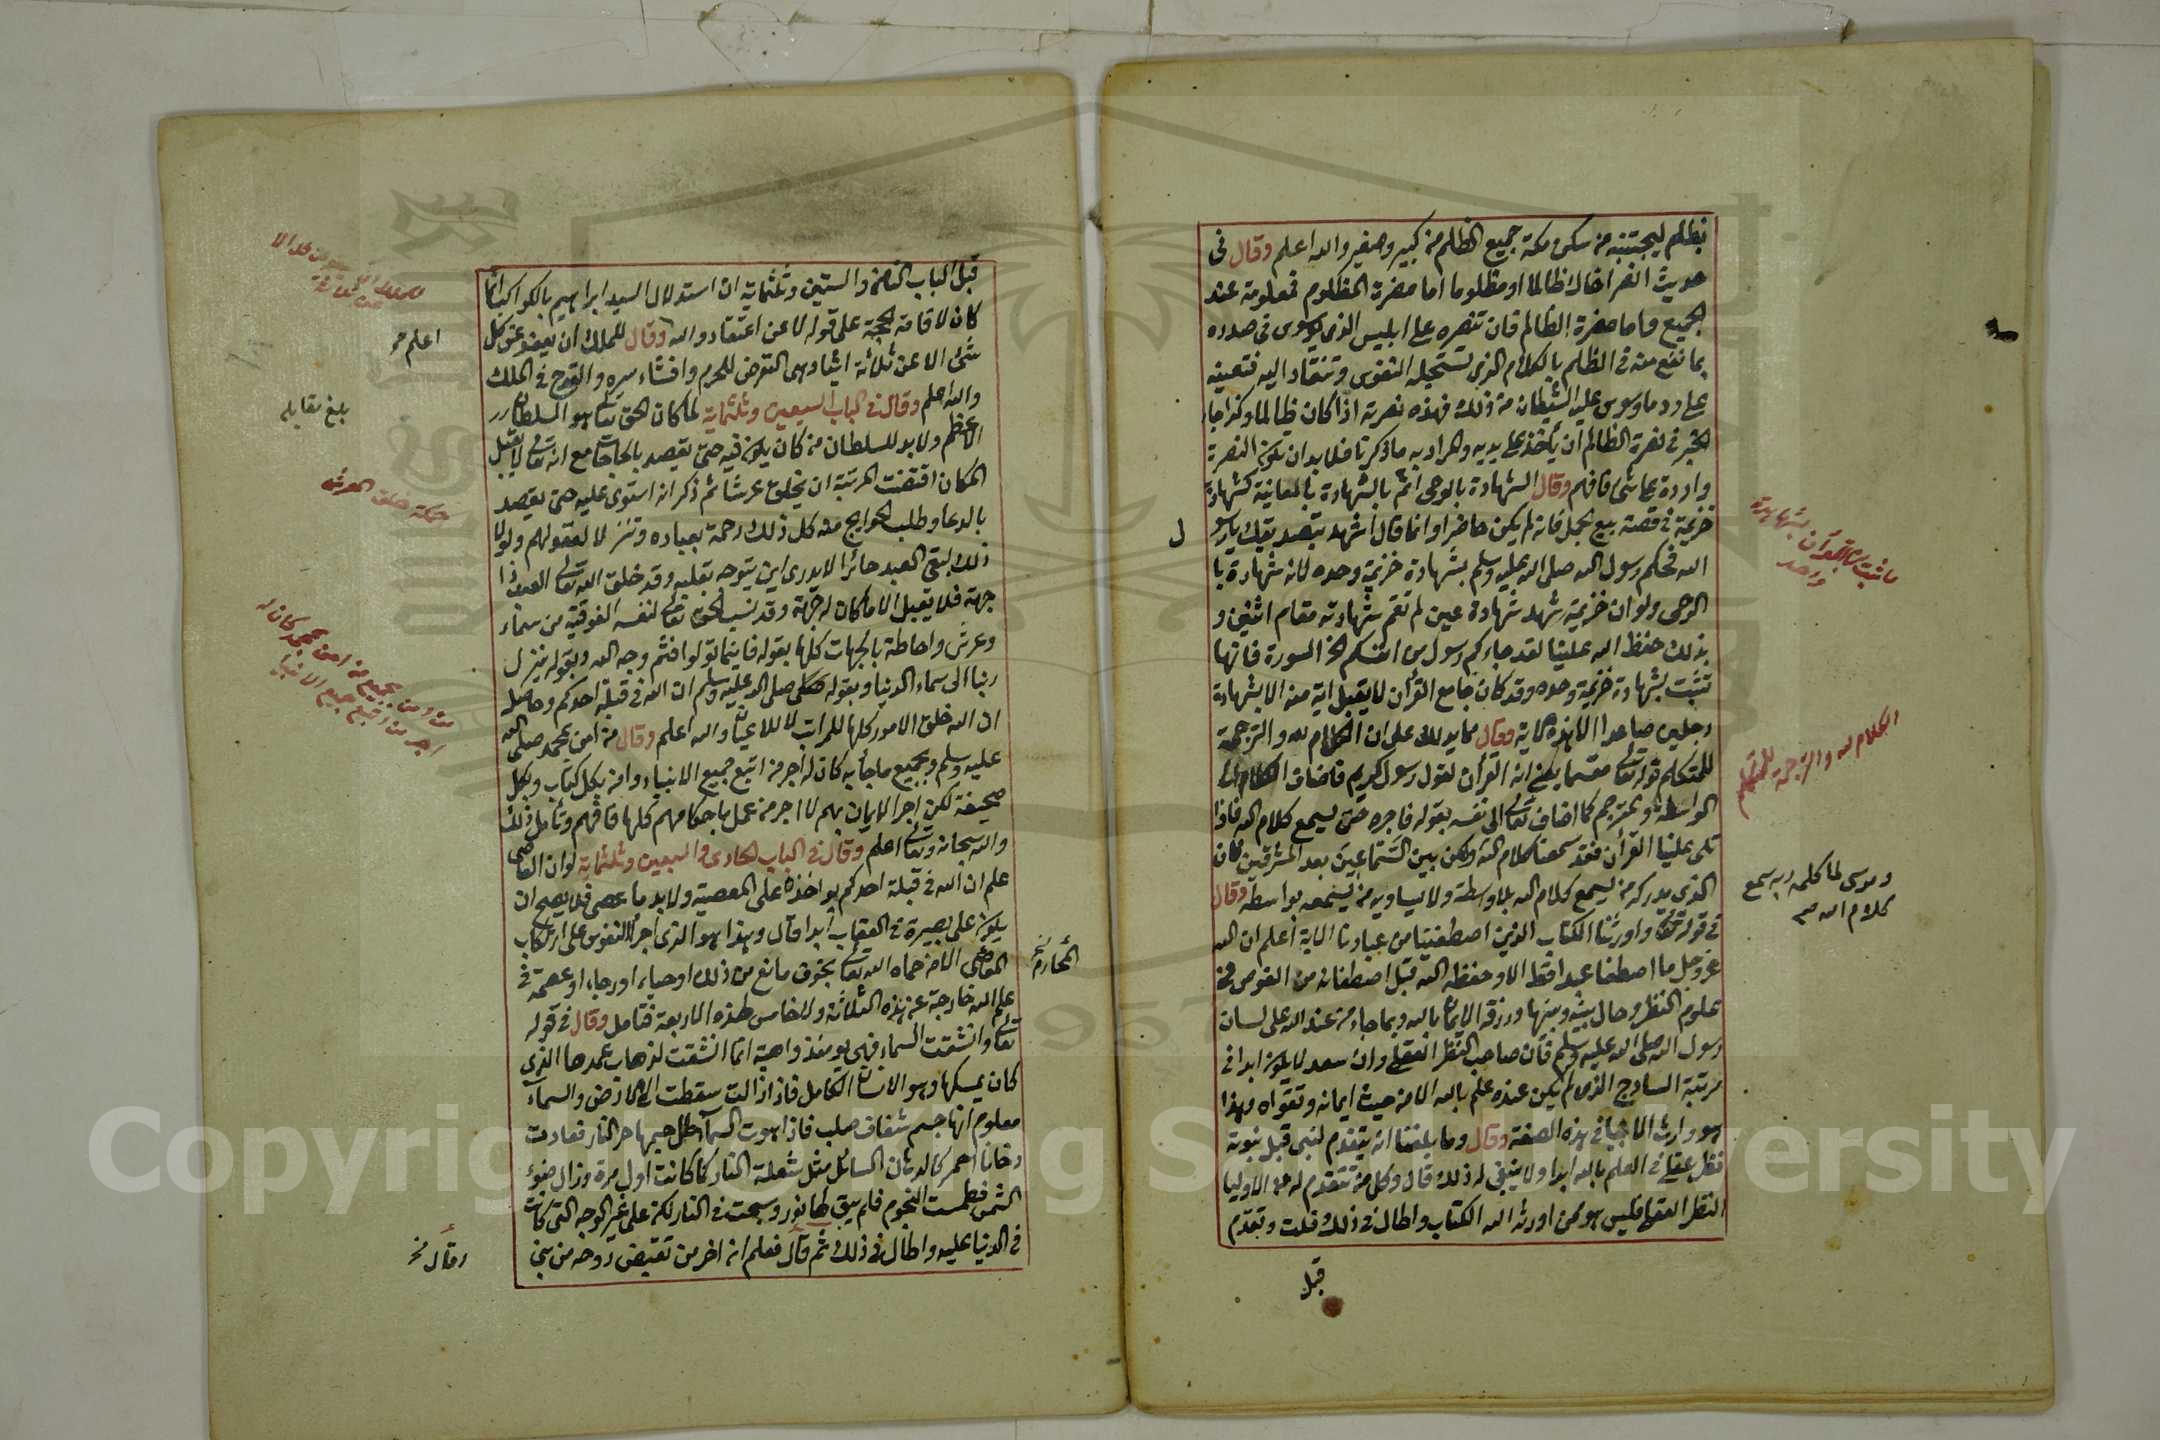 بظلم ليجتنبه من سكن مكة جميع الظلم من كبير وصغير والله اعلم وقال في
حديث انصر اخاك ظالما او مظلوما اما نصرة المظلوم فمعلومة عند
الجميع واما نصرة الظالم فان تنصره على ابليس الذي يوسوس في صدره
بما تقع منه في الظلم بالكلام الذي تستحيله النفوس وتنقاد اليه فتعينه
على رد ما وسوس عليه الشيطان من ذلك فهذه نصرته اذا كان ظالما وكذا جا
الخبر في نصرة الظالم ان يأخذ على يديه والمراد به ما ذكرنا فلا بد ان يكون النصرة
واردة على شئ فافهم وقال الشهادة بالوحى اتم بالشهادة بالمعاينة كشهادة
خزيمة في قصة بيع الجمل فانه لم يكن حاضرا وانما قال أشهد بتصديقك يا رسو
ل
الله فحكم رسول الله صلى الله عليه وسلم بشهادة خزيمة وحده لانه شهادة با
الوحى ولو ان خزيمة شهد شهادة عين لم تقم شهادته مقام اثنين و
بذلك حفظ الله علينا لقد جاءكم رسول من انفسكم الخ السورة فانها
تثبت بشهادة خزيمة وحده وقد كان جامع القرآن لا يقبل اية منه الا بشهادة
رجلين صاعدا الا هذه الاية وقال مما يدلك على ان الكلام لله والترجمة
للمتكلم قوله تعالى مقسما يعني انه القرآن لقول رسول كريم فاضاف الكلام الى
الواسطة والمترجم كما اضافه تعالى الى نفسه بقوله فاجره حتى يسمع كلام الله فاذا
تلى علينا القرآن فقد سمعنا كلام الله ولكن بين السماعين بعد المشرقين فان
الذي يدركه من يسمع كلام الله بلا واسطة ولا يساويه من يسمعه بواسطة وقال
في قوله تعالى واورثنا الكتاب الذين اصطفينا من عبادنا الاية أعلم ان الله
عز وجل ما اصطفا عبدا قط الا وحفظه الله قبل اصطفائه من الخوض في
علوم النظر وحال بينه وبينها ورزقه الايمان بالله وبما جاء من عند الله على لسان
رسول الله صلى الله عليه وسلم فان صاحب النظر العقلي وان سعد لا يكون ابدا في
مرتبة الساذج الذي لم يكن عنده علم بالله الا من حيث ايمانه وتقواه وهذا
هو وارث الانبيا في هذه الصفة وقال وما بلغنا انه يتقدم لنبي قبل نبوته
نظر عقلي في العلم بالله ابدا ولا ينبغي له ذلك قال وكل من تقدم له من الاوليا
النظر العقلي فليس هو ممن اورثه الله الكتاب واطال في ذلك وقلت وتقدم
قبل
ما ثبت من القرآن بشهادة
واحد
الكلام لله والترجمة للمتكلم
وموسى لما كلمه ربه سمع
كلام الله صح
قبل الباب الثامن والستين وثلثماية ان استدلال السيد ابراهيم بالكواكب انما
كان لاقامة الحجة على قومه لا عن اعتقاد والله وقال للملك ان يعفو عن كل
شئ الا عن ثلاثة اشياء وهى التعرض للحرم وافشاء سره والقدح في الملك
والله اعلم وقال في الباب السبعين وثلثماية لما كان الحق تعالى هو السلطان
الاعظم ولا بد للسلطان من كان يكون فيه حتى يقصد بالحاجات مع انه تعالى لا يقبل
المكان اقتضت المرتبة ان يخلق عرشا ثم ذكر انه استوى عليه حتى يقصد
بالدعا وطلب الحوايج منه كل ذلك رحمة بعباده وتنزلا لعقولهم ولولا
ذلك لبقي العبد حائرا لا يدرى اين يتوجه بقلبه وقد خلق الله تعالى العبد ذا
جهة فلا يقبل الا ما كان له جهة وقد نسب الحق تعالى لنفسه الفوقية من سماء
وعرش واحاطة بالجهات كلها بقوله فاينما تولوا فثم وجه الله وبقوله ينزل
ربنا الى سماء الدنيا وبقوله صلى الله عليه وسلم ان الله في قبلة احدكم وحاصله
ان الله خلق الامور كلها للمراتب لا للاعيان والله اعلم وقال من امن بمحمد صلى الله
عليه وسلم وبجميع ما جأ به كان له أجر من اتبع جميع الانبياء وامن بكل كتاب وبكل
صحيفة لكن اجر الايمان بهم لا اجر من عمل باحكامهم كلها فافهم وتأمل ذلك
والله سبحانه وتعالى اعلم وقال في الباب الحادى والسبعين وثلثماية لو ان العاصى
علم ان الله في قبلة احدكم يواخذه على المعصية ولا بد ما عصى فلا يصح ان
يكون على بصيرة في العقاب أبدا قال وهذا هو الذى أجرأ النفوس على ارتكاب
المعاصى الا من حماه الله تعالى بخوف مانع من ذلك او حياء او رجاء او عصمة في
علم الله خارجة عن هذه الثلاثة ولا خامس لهذه الاربعة فتامل وقال في قوله
تعالى وانشقت السماء فهي يومئذ واهية انما انشقت لذهاب عمدها الذى
كان يمسكها وهو الانسان الكامل فاذا زالت سقطت الى الارض والسمآء
معلوم انها جسم شفاف صلب فاذا هوت السمآ حلل جسمها حر النار فعادت
دخانا احمر كالدهان السائل مثل شعلة النار كما كانت اول مرة وزال ضوء
الشمس فطمست النجوم فلم يبق لها نور وسبحت في النار لكن على غير الوجه التي كانت
في الدنيا عليه واطال في ذلك ثم قال فعلم انه اخر من تقبض روحه من بني
اعلم صح
بلغ مقابله
حكمة خلق العرش
من امن بمحمد كان له
اجر من اتبع جميع الانبيا
المحارم نخ
وقال نخ